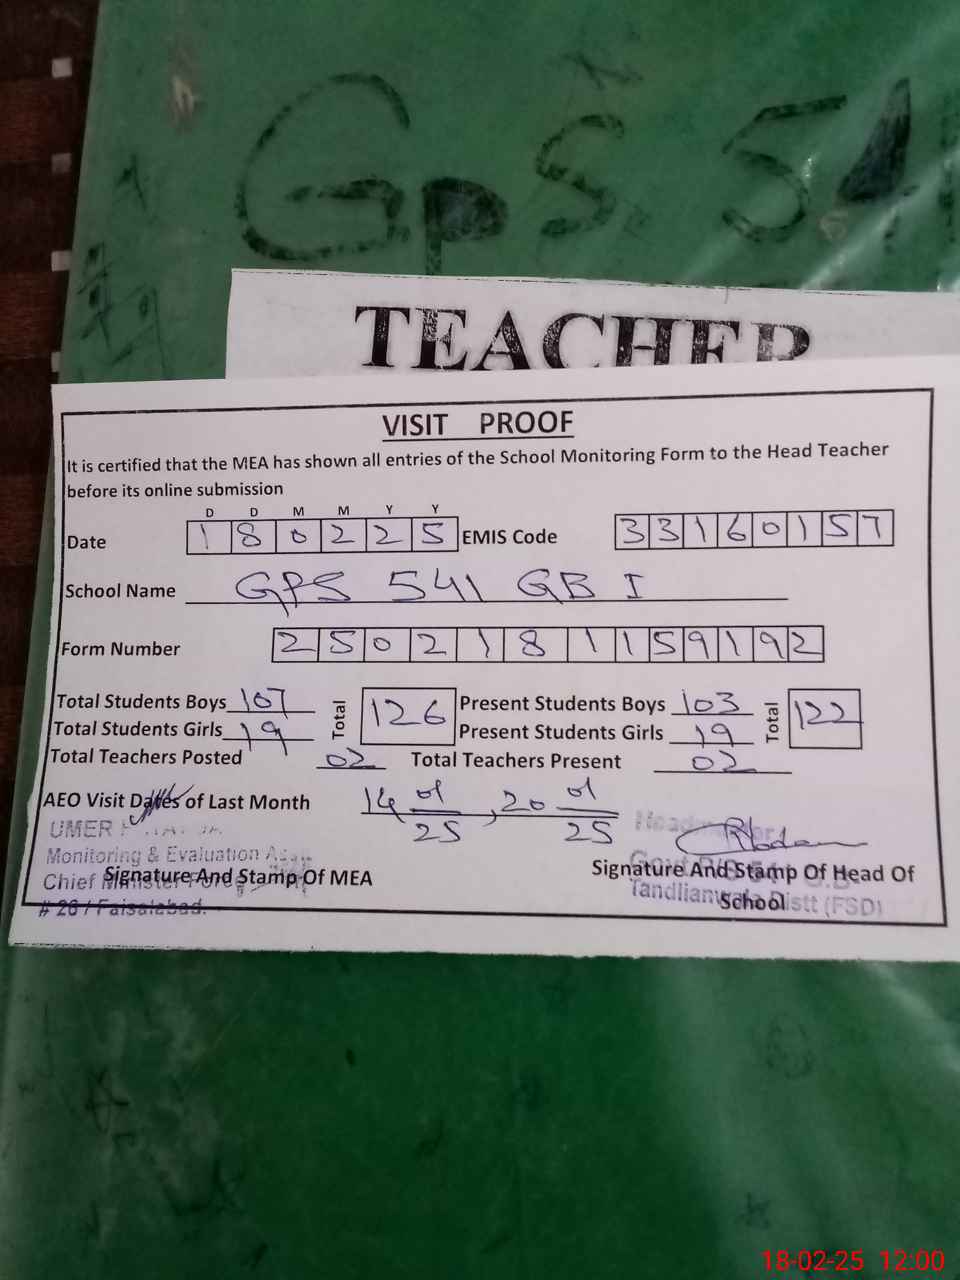 GPS 541
TEACHER
VISIT PROOF
It is certified that the MEA has shown all entries of the School Monitoring Form to the Head Teacher
before its online submission
D D M M Y Y
Date 1 8 0 2 2 5 EMIS Code 3 3 1 6 0 1 5 7
School Name GPS 541 GB I
Form Number 2 5 0 2 1 8 1 1 5 9 1 9 2
Total Students Boys 107 Total 126 Present Students Boys 103 Total 122
Total Students Girls 19 Present Students Girls 19
Total Teachers Posted 02 Total Teachers Present 02
AEO Visit Dates of Last Month 14 01/25, 20 01/25
UMER
Monitoring & Evaluation
Chief Minister
Signature And Stamp Of MEA
# 26 / Faisalabad.
Signature And Stamp Of Head Of
School
Tandlianwala Distt (FSD)
18-02-25 12:00